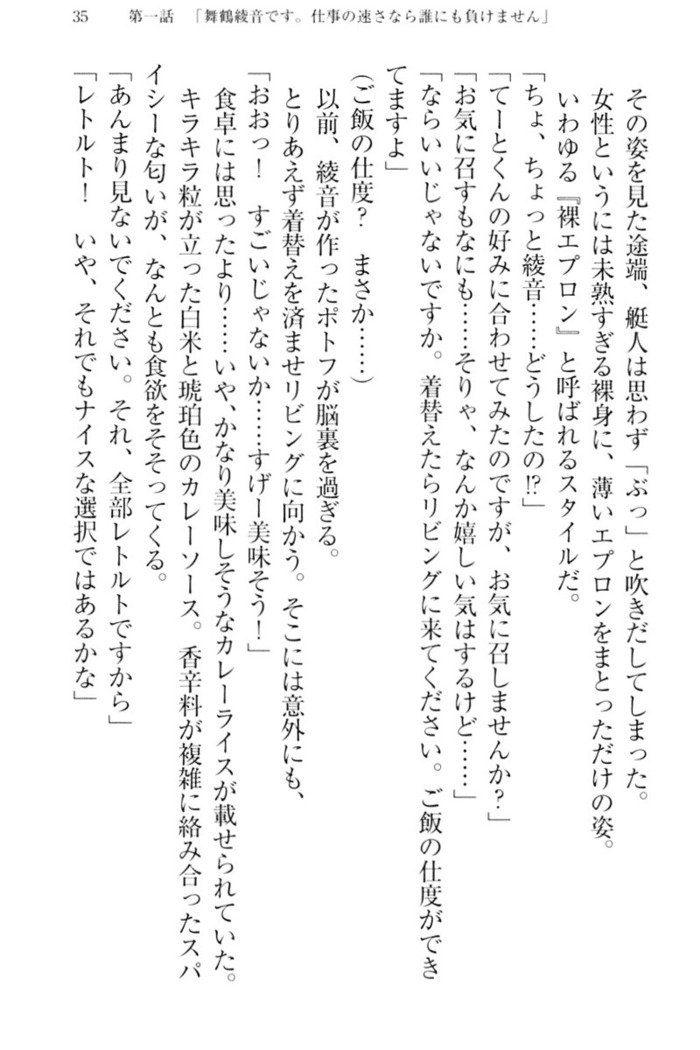 35　第一話　「舞鶴綾音です。仕事の速さなら誰にも負けません」
その姿を見た途端、艇人は思わず「ぶっ」と吹きだしてしまった。
女性というには未熟すぎる裸身に、薄いエプロンをまとっただけの姿。
いわゆる『裸エプロン』と呼ばれるスタイルだ。
「ちょ、ちょっと綾音……どうしたの!?」
「てーとくんの好みに合わせてみたのですが、お気に召しませんか？」
「お気に召すもなにも……そりゃ、なんか嬉しい気はするけど……」
「ならいいじゃないですか。着替えたらリビングに来てください。ご飯の仕度ができ
てますよ」
（ご飯の仕度？　まさか……）
以前、綾音が作ったポトフが脳裏を過ぎる。
とりあえず着替えを済ませリビングに向かう。そこには意外にも、
「おおっ！　すごいじゃないか……すげー美味そう！」
食卓には思ったより……いや、かなり美味しそうなカレーライスが載せられていた。
キラキラ粒が立った白米と琥珀色のカレーソース。香辛料が複雑に絡み合ったスパ
イシーな匂いが、なんとも食欲をそそってくる。
「あんまり見ないでください。それ、全部レトルトですから」
「レトルト！　いや、それでもナイスな選択ではあるかな」